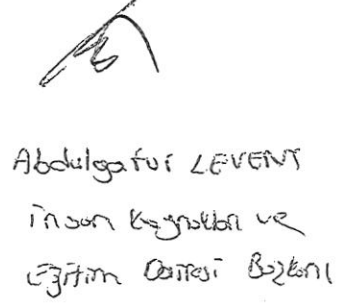 Abdulgafur LEVENT
İnsan Kaynakları ve
Eğitim Dairesi Başkanı